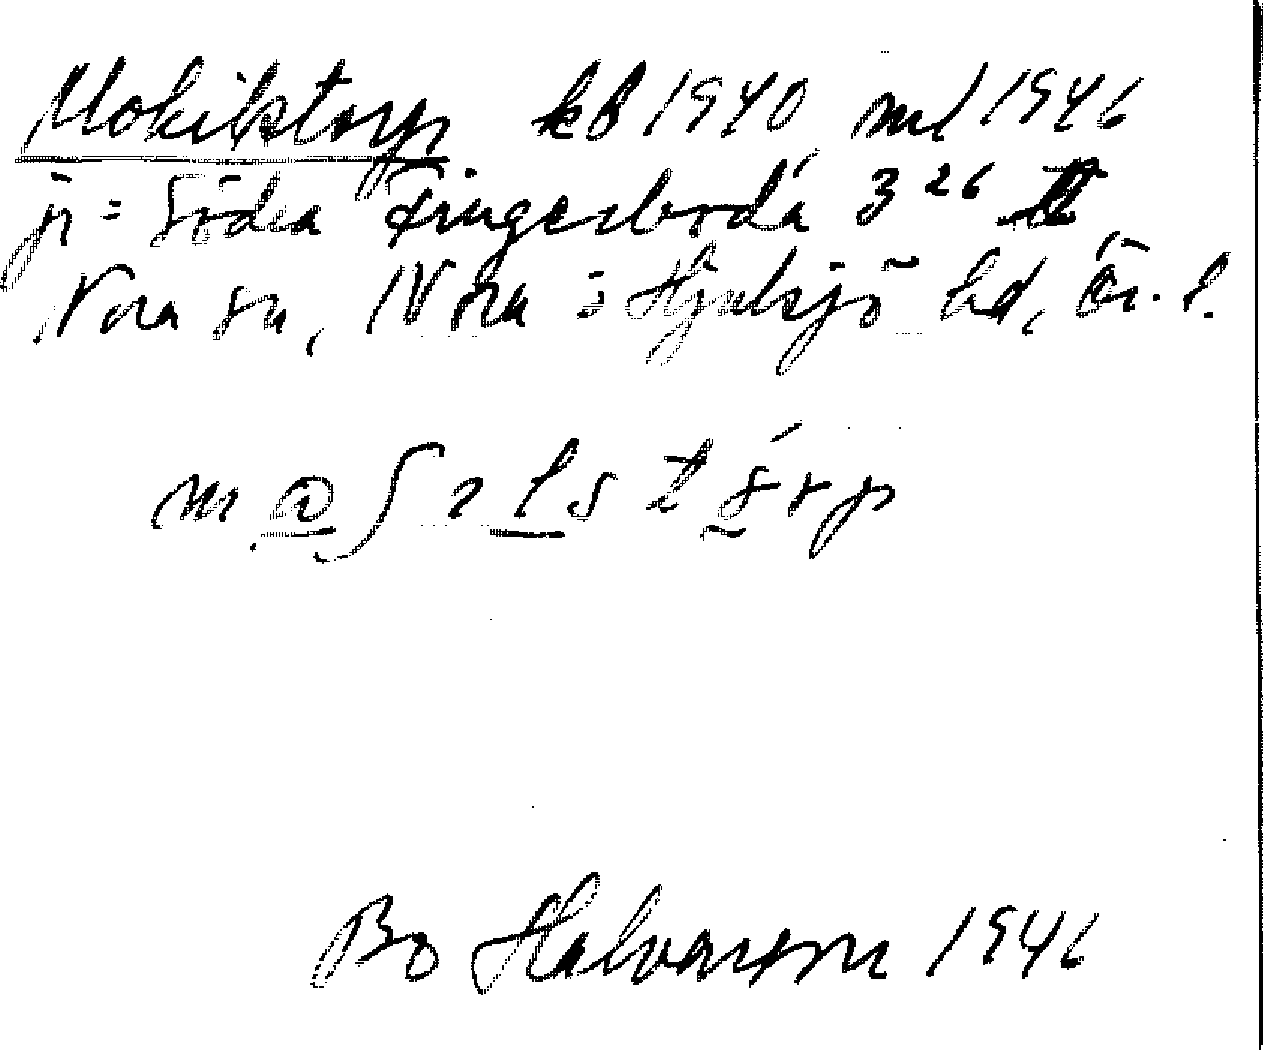 Mokilstorp kb 1940 ml 1946
jr = Södra Fingerboda 3 26
Nora sn, Nora o Hjulsjö hd, Ör. l.
m ꝏ ʃ ɩ l s t ó r p
Bo Halvarson 1946